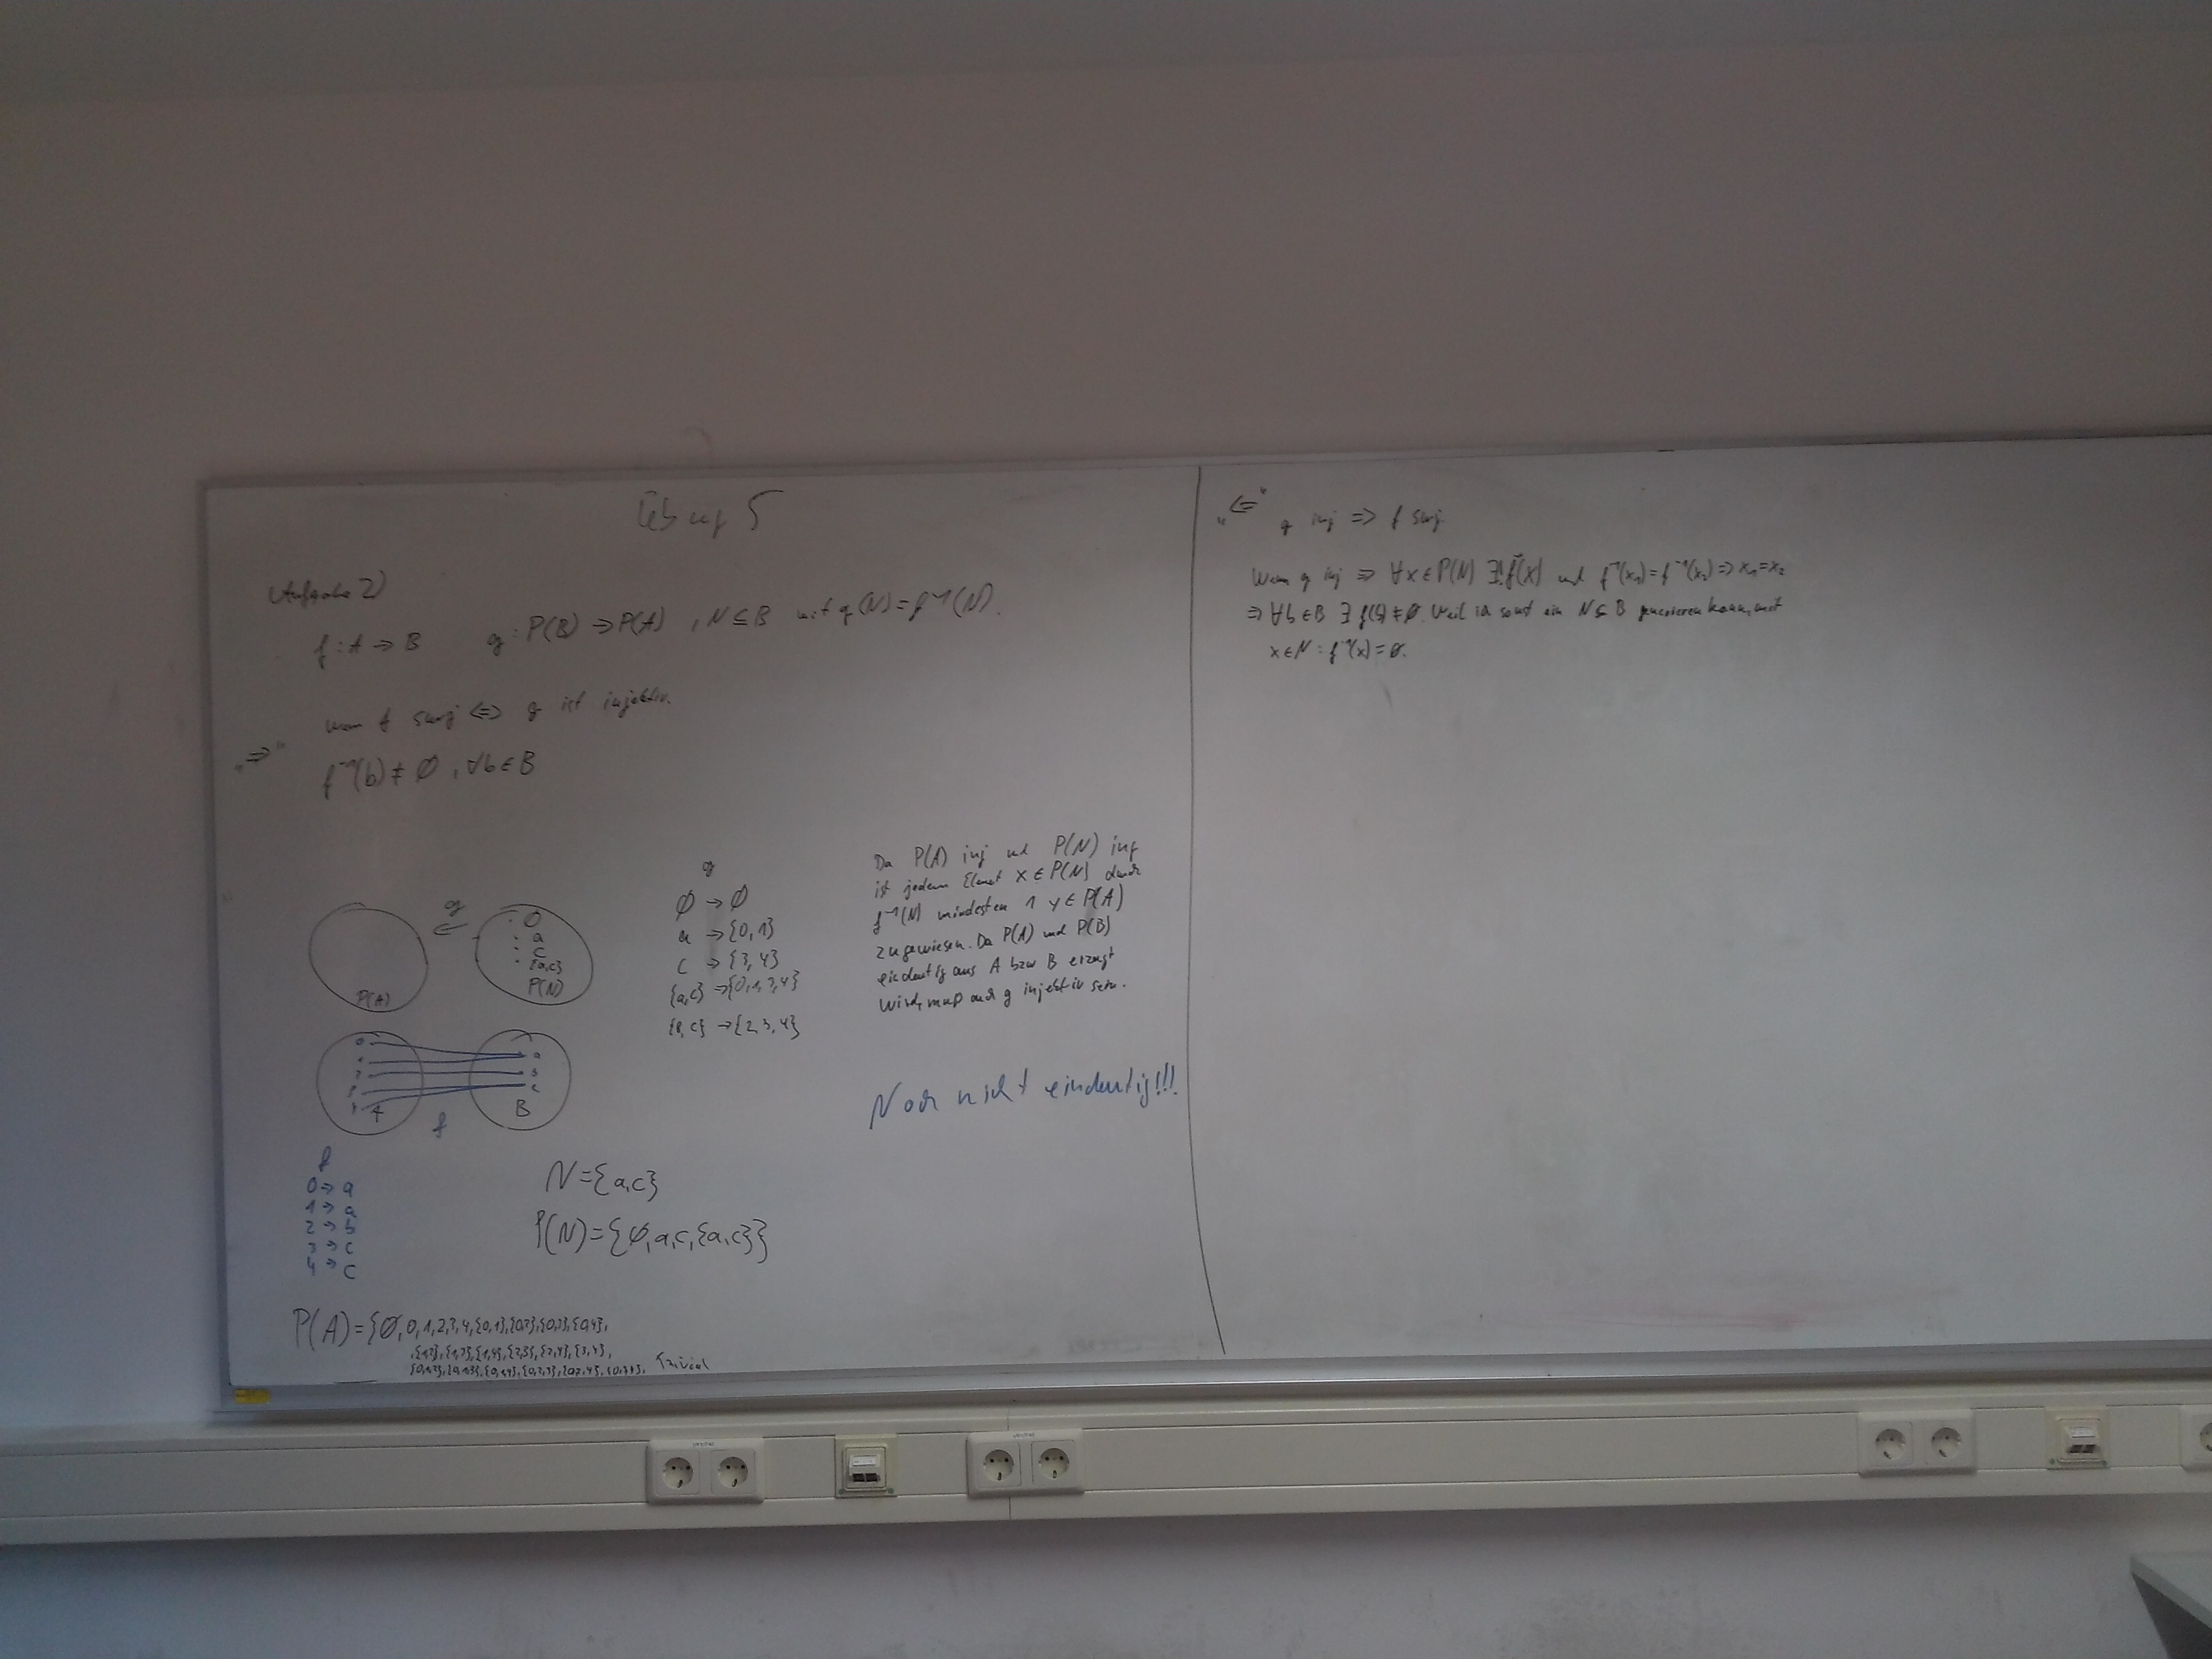 Übung 5
Aufgabe 2)
f: A → B g: P(B) → P(A), N ⊆ B mit g(N) = f⁻¹(N).
wenn f surj <=> g ist injektiv.
„⇒"
f⁻¹(b) ≠ ∅, ∀b ∈ B
g
∅
a
c
{a,c}
P(N)
P(A)
g
∅ → ∅
a → {0,1}
c → {3,4}
{a,c} → {0,1,3,4}
{b,c} → {2,3,4}
Da P(A) inj und P(N) inj
ist jedem Element x ∈ P(N) durch
f⁻¹(N) mindesten 1 y ∈ P(A)
zugewiesen. Da P(A) und P(B)
eindeutig aus A bzw B erzeugt
wird, muß auch g injektiv sein.
A
f
B
Noch nicht eindeutig!!!
f
0 → a
1 → a
2 → b
3 → c
4 → c
N = {a,c}
P(N) = {∅,a,c,{a,c}}
P(A) = {∅,0,1,2,3,4,{0,1},{0,2},{0,3},{0,4},
,{1,2},{1,3},{1,4},{2,3},{2,4},{3,4},
{0,1,2},{0,1,3},{0,1,4},{0,2,3},{0,2,4},{0,3,4}, Trivial
„<="
g inj => f surj.
Wenn g inj => ∀x ∈ P(N) ∃! f⁻¹(x) und f⁻¹(x₁) = f⁻¹(x₂) => x₁ = x₂
=> ∀b ∈ B ∃ f(b) ≠ ∅. Weil sonst ein N ⊆ B generieren kann, mit
x ∈ N : f⁻¹(x) = ∅.